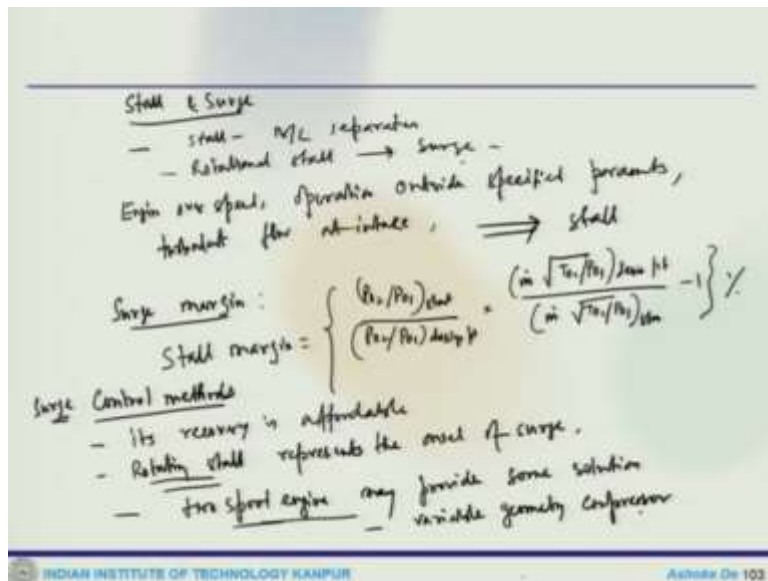 Stall & Surge
— stall – B/L separation
– Rotational stall → surge –
Engin over speed, operation outside specified params,
turbulent flow at intake, ⇒ stall
Surge margin :
Stall margin = { (P02/P01)stall / (P02/P01) design pt × (ṁ √T01/P01) design pt / (ṁ √T01/P01)stall − 1 } %
Surge Control methods
– Its recovery is affordable
– Rotating stall represents the onset of surge.
— two spool engine may provide some solution
– variable geometry compressor
INDIAN INSTITUTE OF TECHNOLOGY KANPUR
Ashoke De 103